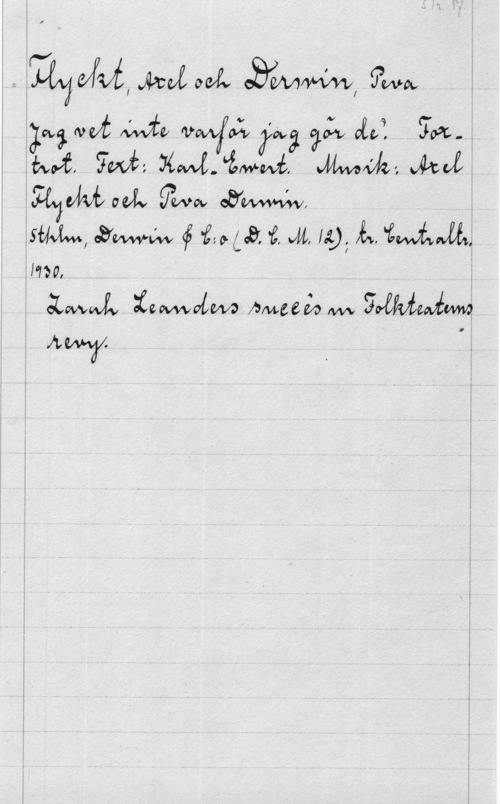 Flyckt, Axel och Derwin, Peva
Jag vet inte varför jag gör de'. Fox-
trot. Text: Karl-Ewert. Musik: Axel
Flyckt och Peva Derwin.
Sthlm, Derwin & C:o (D. C. M. 12); tr. Centraltr.
1930.
Zarah Leanders succès ur Folkteaterns
revy.